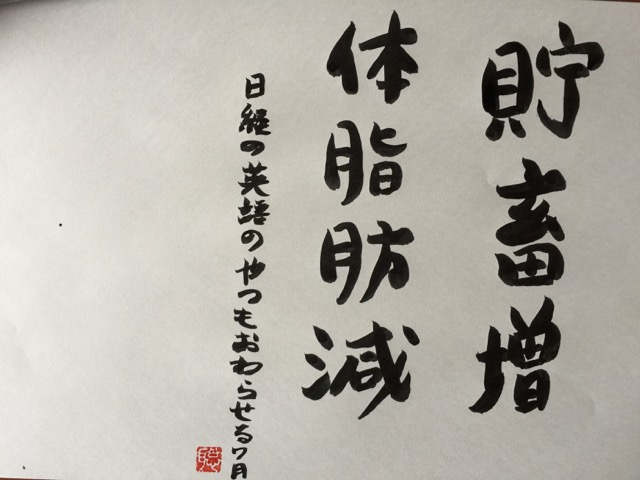 貯畜増
体脂肪減
日経の英語のやつもおわらせる7月